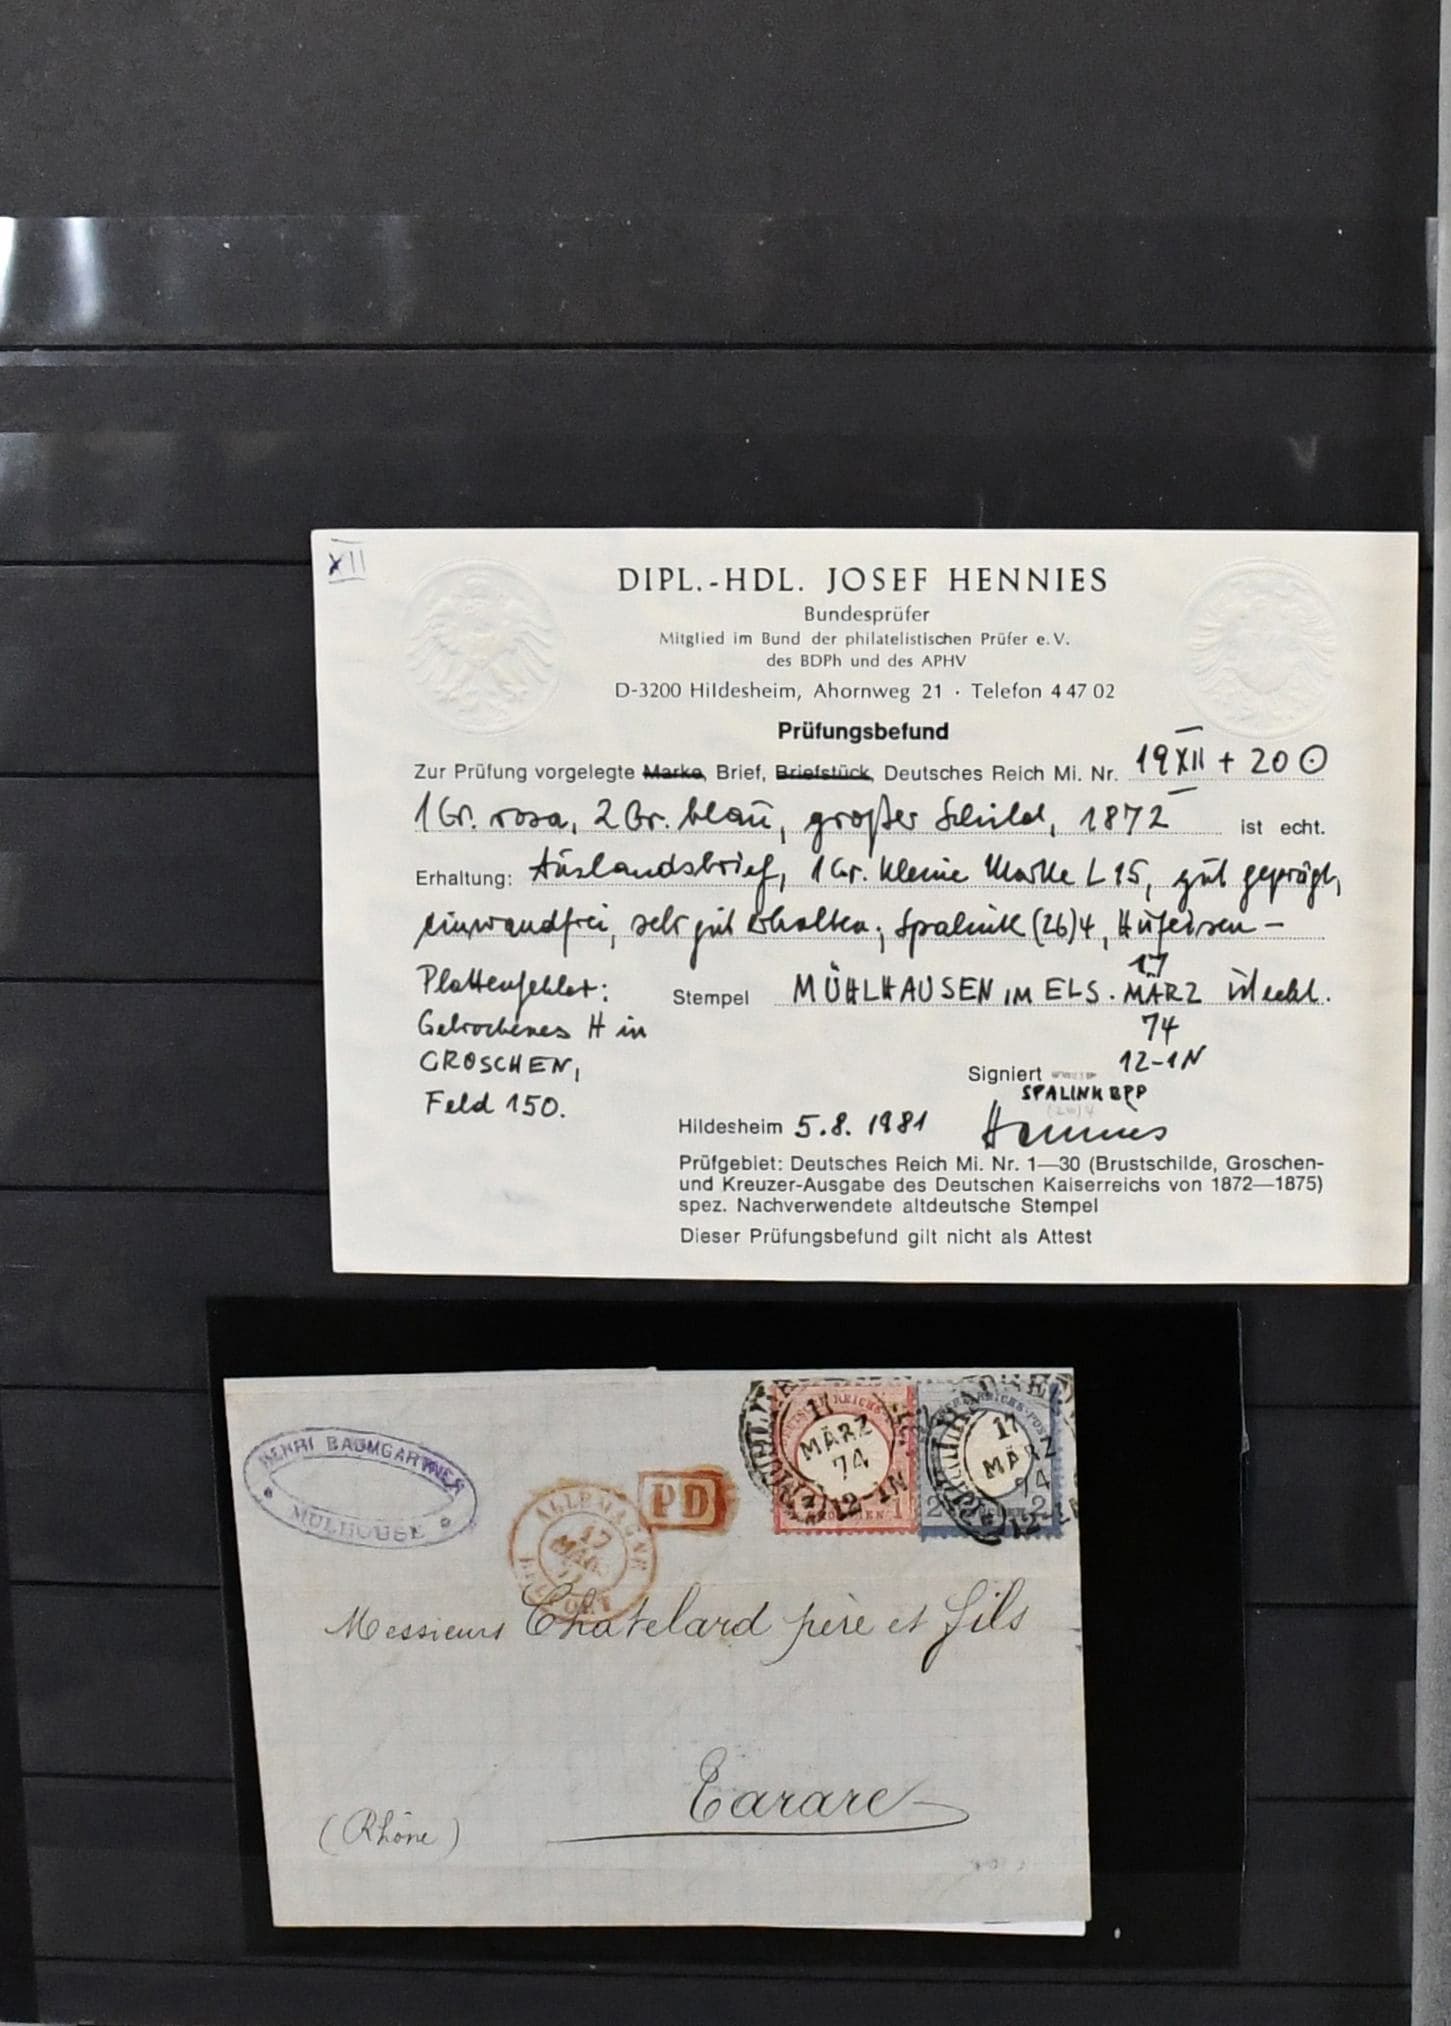 XII
DIPL.-HDL. JOSEF HENNIES
Bundesprüfer
Mitglied im Bund der philatelistischen Prüfer e.V.
des BDPh und des APHV
D-3200 Hildesheim, Ahornweg 21 · Telefon 4 47 02
Prüfungsbefund
Zur Prüfung vorgelegte Marke, Brief, Briefstück, Deutsches Reich Mi. Nr. 19 XII + 20 ⊙
1 Gr. rosa, 2 Gr. blau, großer Schild, 1872 ist echt.
Erhaltung: Auslandsbrief, 1 Gr. kleine Marke L 15, gut geprägt,
einwandfrei, sehr gut erhalten; Spalink (26)4, Hufeisen-
Plattenfehler: Stempel MÜHLHAUSEN IM ELS. 17 MÄRZ ist echt.
Gebrochenes H in 74
GROSCHEN, 12-1N
Signiert
SPALINK BPP
Feld 150.
Hildesheim 5.8.1981 Hennies
Prüfgebiet: Deutsches Reich Mi. Nr. 1—30 (Brustschilde, Groschen-
und Kreuzer-Ausgabe des Deutschen Kaiserreichs von 1872—1875)
spez. Nachverwendete altdeutsche Stempel
Dieser Prüfungsbefund gilt nicht als Attest
HENRI BAUMGARTNER
MULHOUSE
ALLEMAGNE
17
MARS
BELFORT
PD
17
MÄRZ
74
12-1N
1
17
MÄRZ
74
2 2
Messieurs Chatelard père et fils
Tarare
(Rhône)